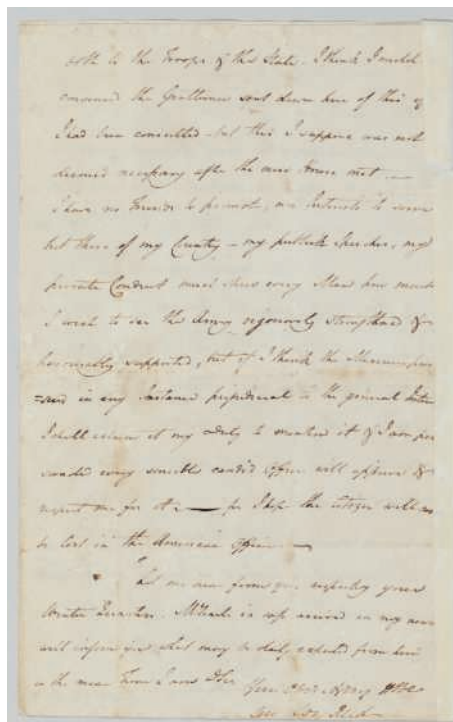 both to the Troops & the State. I think I could
convinced the Gentlemen sent down here of this if
I had been consulted but this I suppose was not
deemed necessary after the new House met —
I have no Friends to promote, no Interests to serve
but those of my Country — my publick Speeches, my
private Conduct must shew every Man how much
I wish to see the Army vigorously strengthened &
honourably supported, but if I think the Measures pur
=sued in any Instance prejudicial to the general Inter
I shall esteem it my Duty to mention it & I am per
suaded every sensible candid Officer will approve &
respect me for it — for I hope the Citizen will no
be lost in the American Officer —
Let me hear from you respecting your
Winter Quarters. is safe arrived in my
will inform you what may be daily expected from here
in the mean Time I am D Sir Your Obed